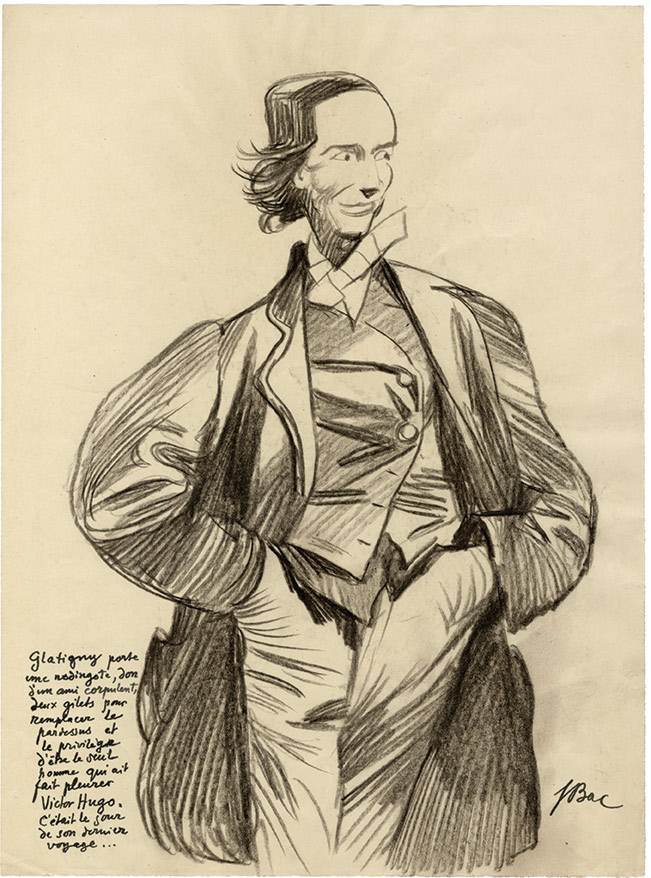 Glatigny porte
une redingote, don
d'un ami corpulent,
deux gilets pour
remplacer le
pardessus et
le privilège
d'être le seul
homme qui ait
fait pleurer
Victor Hugo.
C'était le jour
de son dernier
voyage...
F Bac